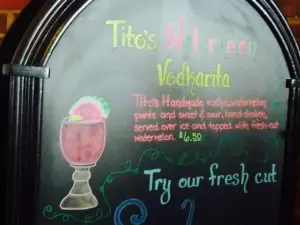 Tito's
Vodkarita
Tito's Handmade vodka, watermelon
purée and sweet & sour, hand-shaken,
served over ice and topped with fresh-cut
watermelon. $6.50
Try our fresh cut